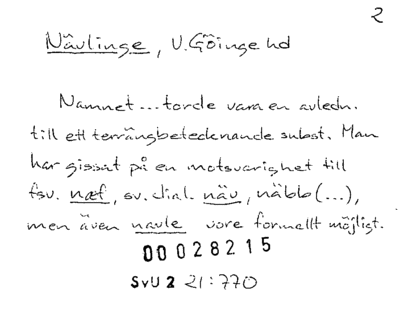 2
Nävlinge, V. Göinge hd
Namnet...torde vara en avledn.
till ett terrängbetecknande subst. Man
har gissat på en motsvarighet till
fsv. næf, sv. dial. näv, näbb (...),
men även navle vore formellt möjligt.
00028215
SvU 2 21:770